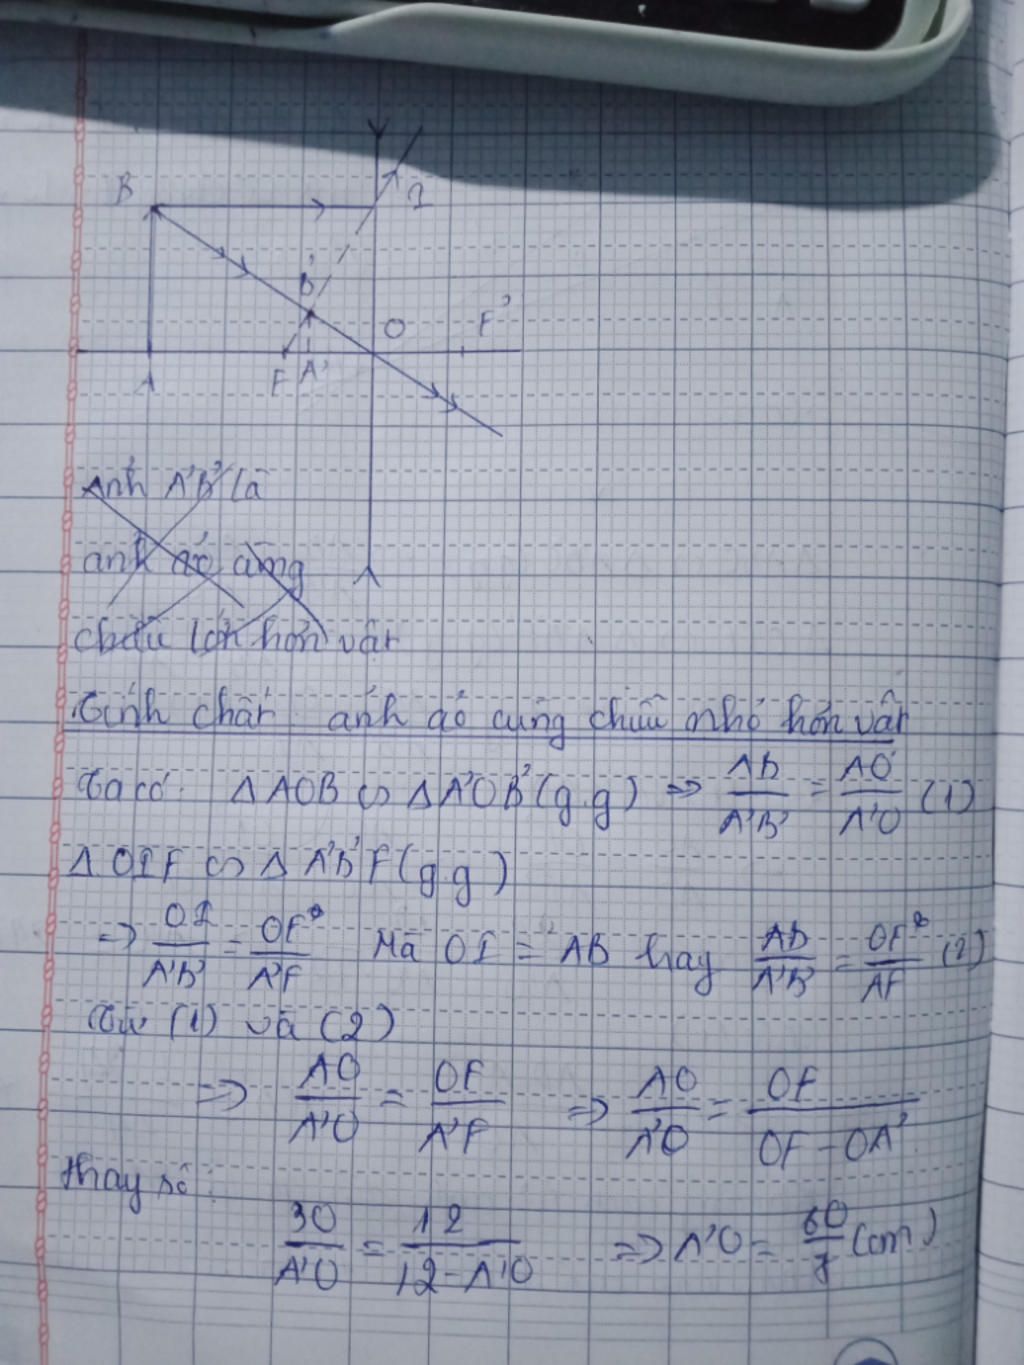 B I
B'
O F'
A F A'
Ảnh A'B' là
ảnh ảo cùng
chiều lớn hơn vật
Tính chất: ảnh ảo cùng chiều nhỏ hơn vật
Ta có: Δ AOB ∽ Δ A'OB' (g.g) => AB/A'B' = AO/A'O (1)
Δ OIF ∽ Δ A'B'F (g.g)
=> OI/A'B' = OF/A'F Mà OI = AB hay AB/A'B' = OF/AF (2)
Từ (1) và (2)
=> AO/A'O = OF/A'F => AO/A'O = OF/OF - OA'
thay số:
30/A'O = 12/12 - A'O => A'O = 60/7 (cm)